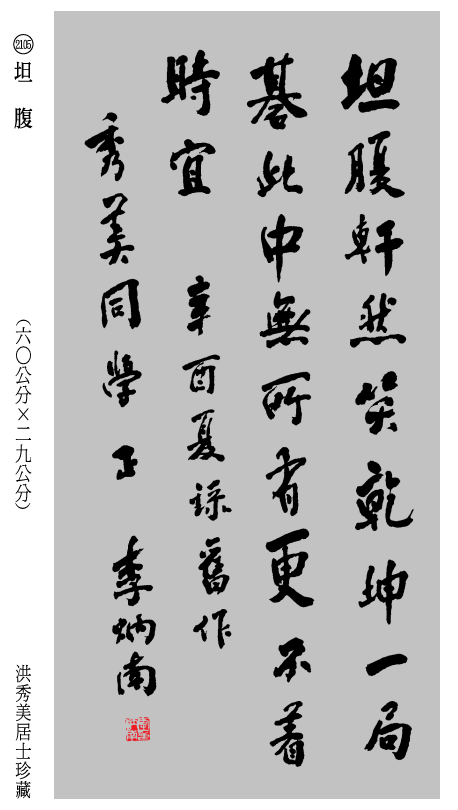 坦腹軒然笑乾坤一局
棊此中無所有更不着
時宜 辛酉夏録舊作
秀美同學正 李炳南
2105 坦腹
(六〇公分×二九公分)
洪秀美居士珍藏